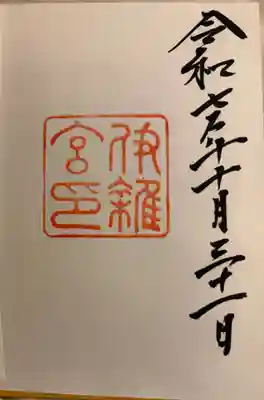 令和七年十月三十一日
伊雑
宮印